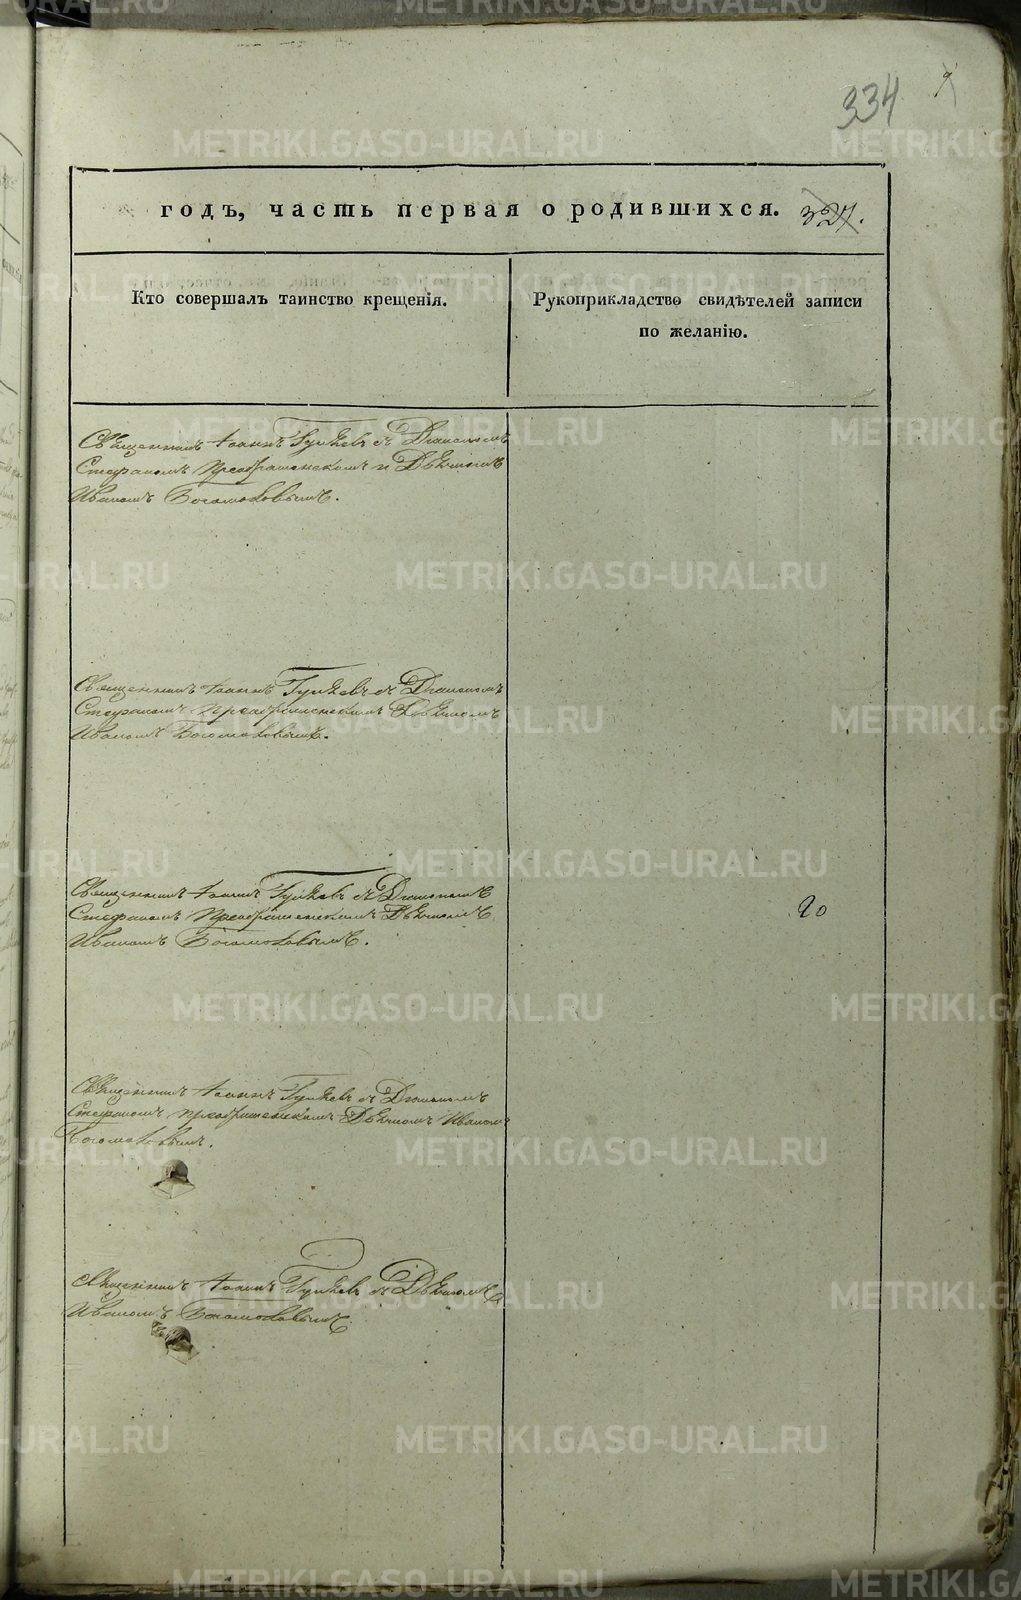 334
годъ, часть первая о родившихся. 327.
Кто совершалъ таинство крещенія.
Рукоприкладство свидѣтелей записи
по желанію.
Священникъ Іоаннъ съ Діакономъ
Стефаномъ Преображенскимъ и Дьячкомъ
Иваномъ Богомоловымъ.
Священникъ Іоаннъ съ Діакономъ
Стефаномъ Преображенскимъ Дьячкомъ
Иваномъ Богомоловымъ.
Священникъ Іоаннъ съ Діакономъ
Стефаномъ Преображенскимъ Дьячкомъ
Иваномъ Богомоловымъ.
20
Священникъ Іоаннъ съ Діакономъ
Стефаномъ Преображенскимъ Дьячкомъ Иваномъ
Богомоловымъ.
Священникъ Іоаннъ съ Дьячкомъ
Иваномъ Богомоловымъ
METRIKI.GASO-URAL.RU